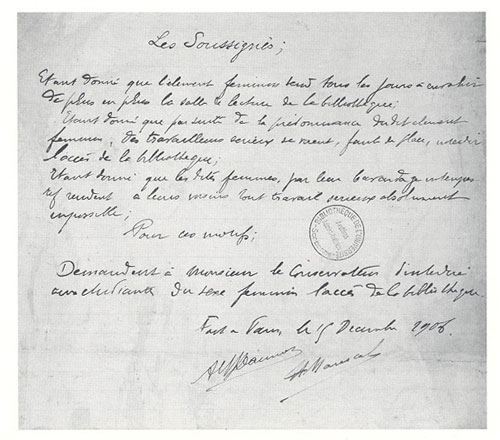 Les Soussignés;
Etant donné que l'élément féminin tend tous les jours à envahir
de plus en plus la salle de lecture de la bibliothèque;
Etant donné que par suite de la prédominance dudit élément
féminin, des travailleurs sérieux se voient, faute de place, interdire
l'accès de la bibliothèque;
Etant donné que les dites femmes, par leur bavardage intempes
tif rendent à leurs voisins tout travail sérieux absolument
impossible;
Pour ces motifs;
BIBLIOTHÈQUE DE L'UNIVERSITÉ
Demandent à Monsieur le Conservateur d'interdire
aux étudiants du sexe féminin l'accès de la bibliothèque.
Fait à Paris, le 15 Décembre 1906.